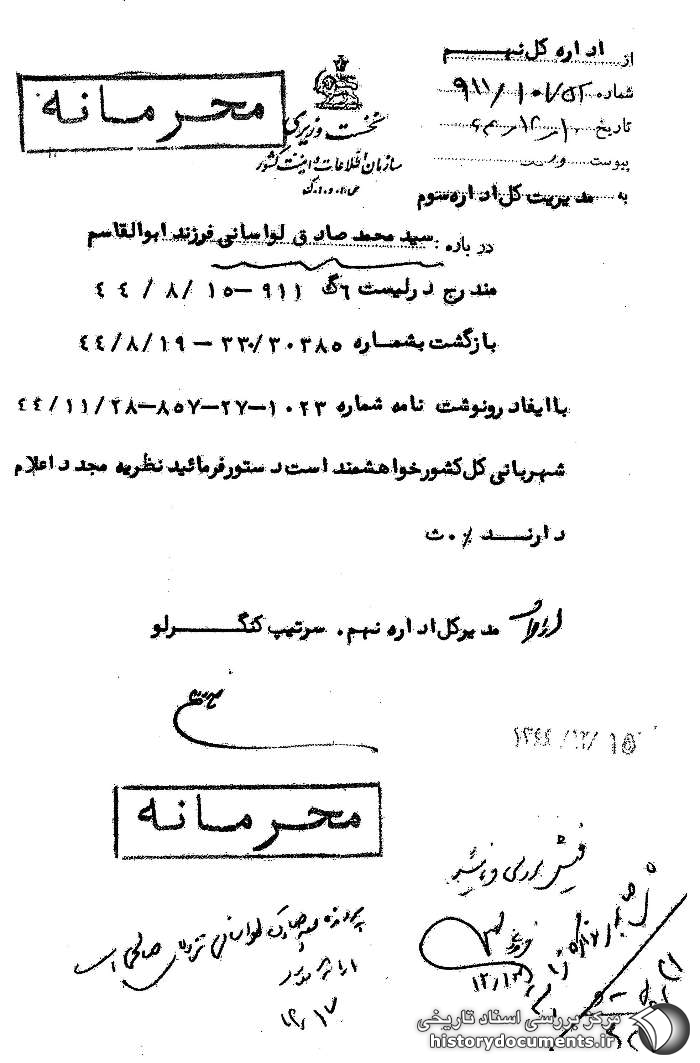 محرمانه
نخست وزیری
سازمان اطلاعات و امنیت کشور
س.ا.و.ا.ک
از اداره کل نهم
شماره ۹۱۱/
تاریخ
پیوست
به مدیریت کل اداره سوم
در باره: سید محمد صادق لواسانی فرزند ابوالقاسم
مندرج در لیست ۹۱۱ –۱۵ /۸ / ٤٤
بازگشت بشماره ۳۰۳۸۵/ ۳۳۰ – ۱۹/ ۸/ ٤٤
با ایفاد رونوشت نامه شماره ۱۰۲۳–۲۷–۸۵۷–۲۸/ ۱۱/ ٤٤
شهربانی کل کشور خواهشمند است دستور فرمائید نظریه مجدد اعلام
دارنــد ٪. ث
مدیر کل اداره نهم. سرتیپ کنگــرلو
۱۵ /۱۲/ ۱۳٤٤
محرمانه
فیش بررسی و
پرونده صادق لواسانی نزد صالحی است
مرکز بررسی اسناد تاریخی
historydocuments.ir